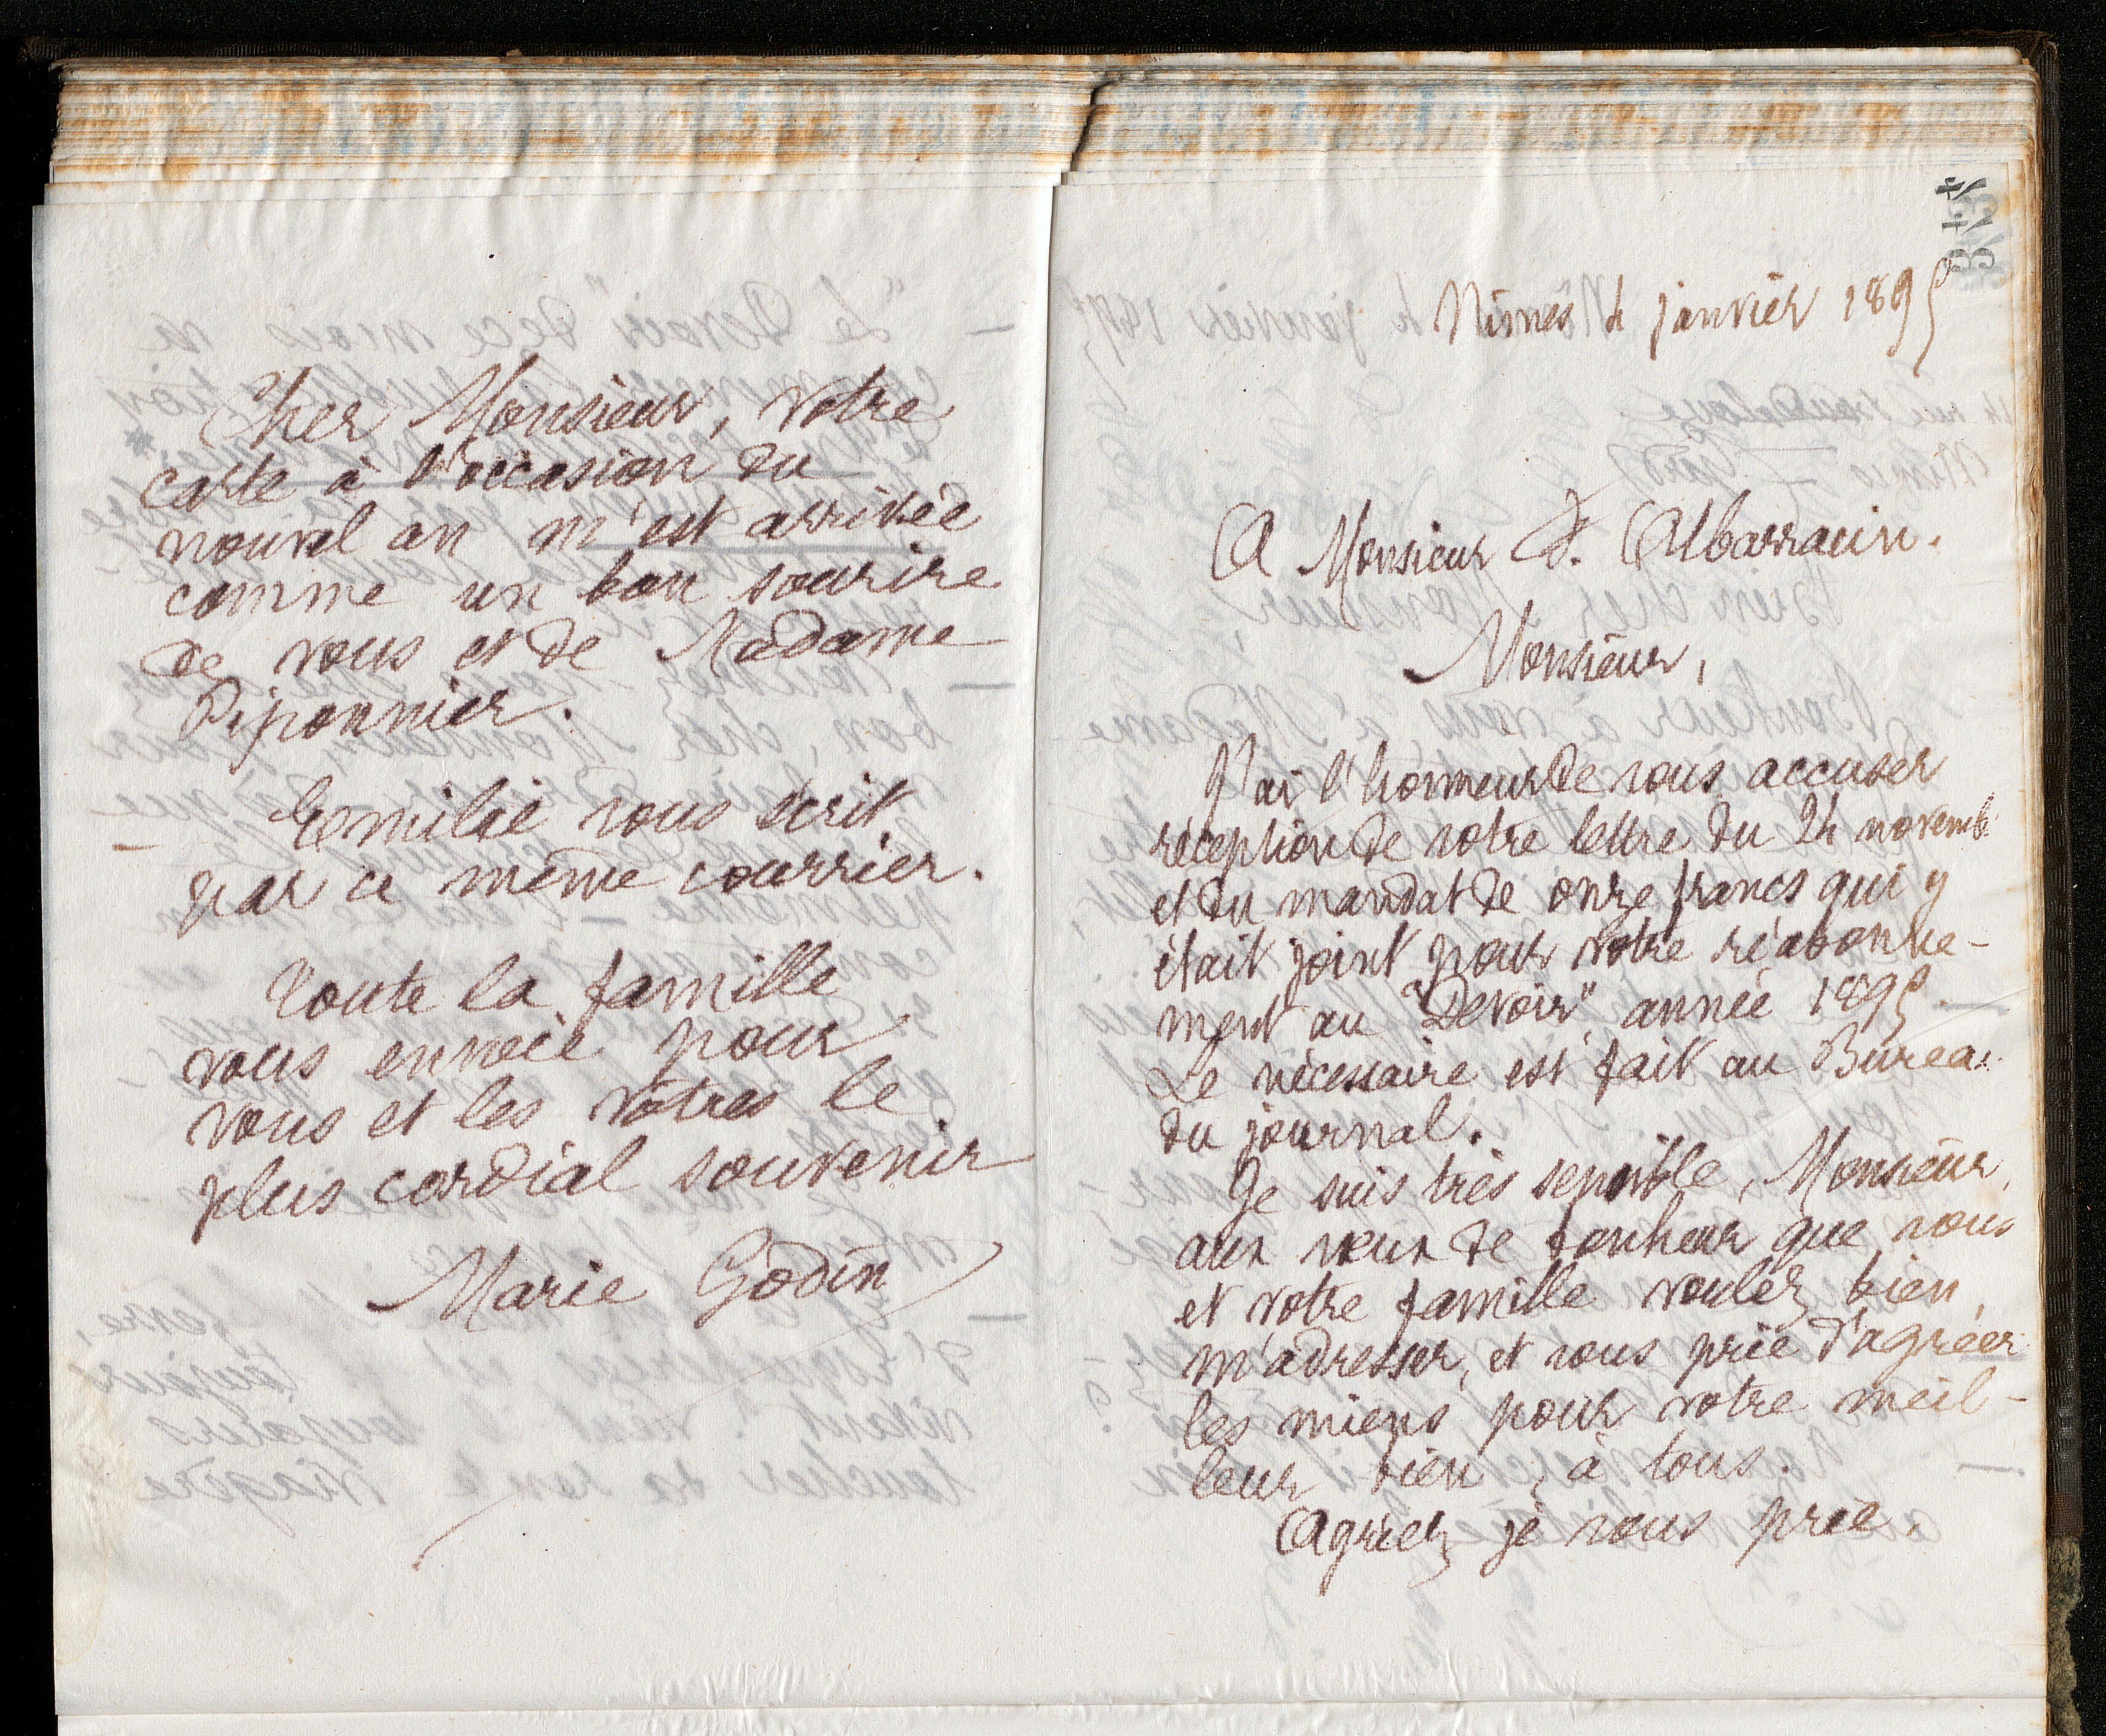 Cher Monsieur, votre
carte à l'occasion du
nouvel an m'est arrivée
comme un bon sourire
de vous et de Madame
Piponnier.
Emilie vous écrit
par ce même courrier.
Toute la famille
vous envoie pour
vous et les vôtres le
plus cordial souvenir
Marie Godin
Nîmes 4 janvier 1895
A Monsieur F. Albarracin.
Monsieur,
J'ai l'honneur de vous accuser
réception de votre lettre du 24 novemb.
et du mandat de onze francs qui y
était joint pour votre réabonne-
ment au "Devoir" année 1895.
Le nécessaire est fait au Bureau
du journal.
Je suis très sensible, Monsieur,
aux vœux de bonheur que vous
et votre famille voulez bien
m'adresser, et vous prie d'agréer
les miens pour votre meil-
leur bien, à tous.
Agréez je vous prie,